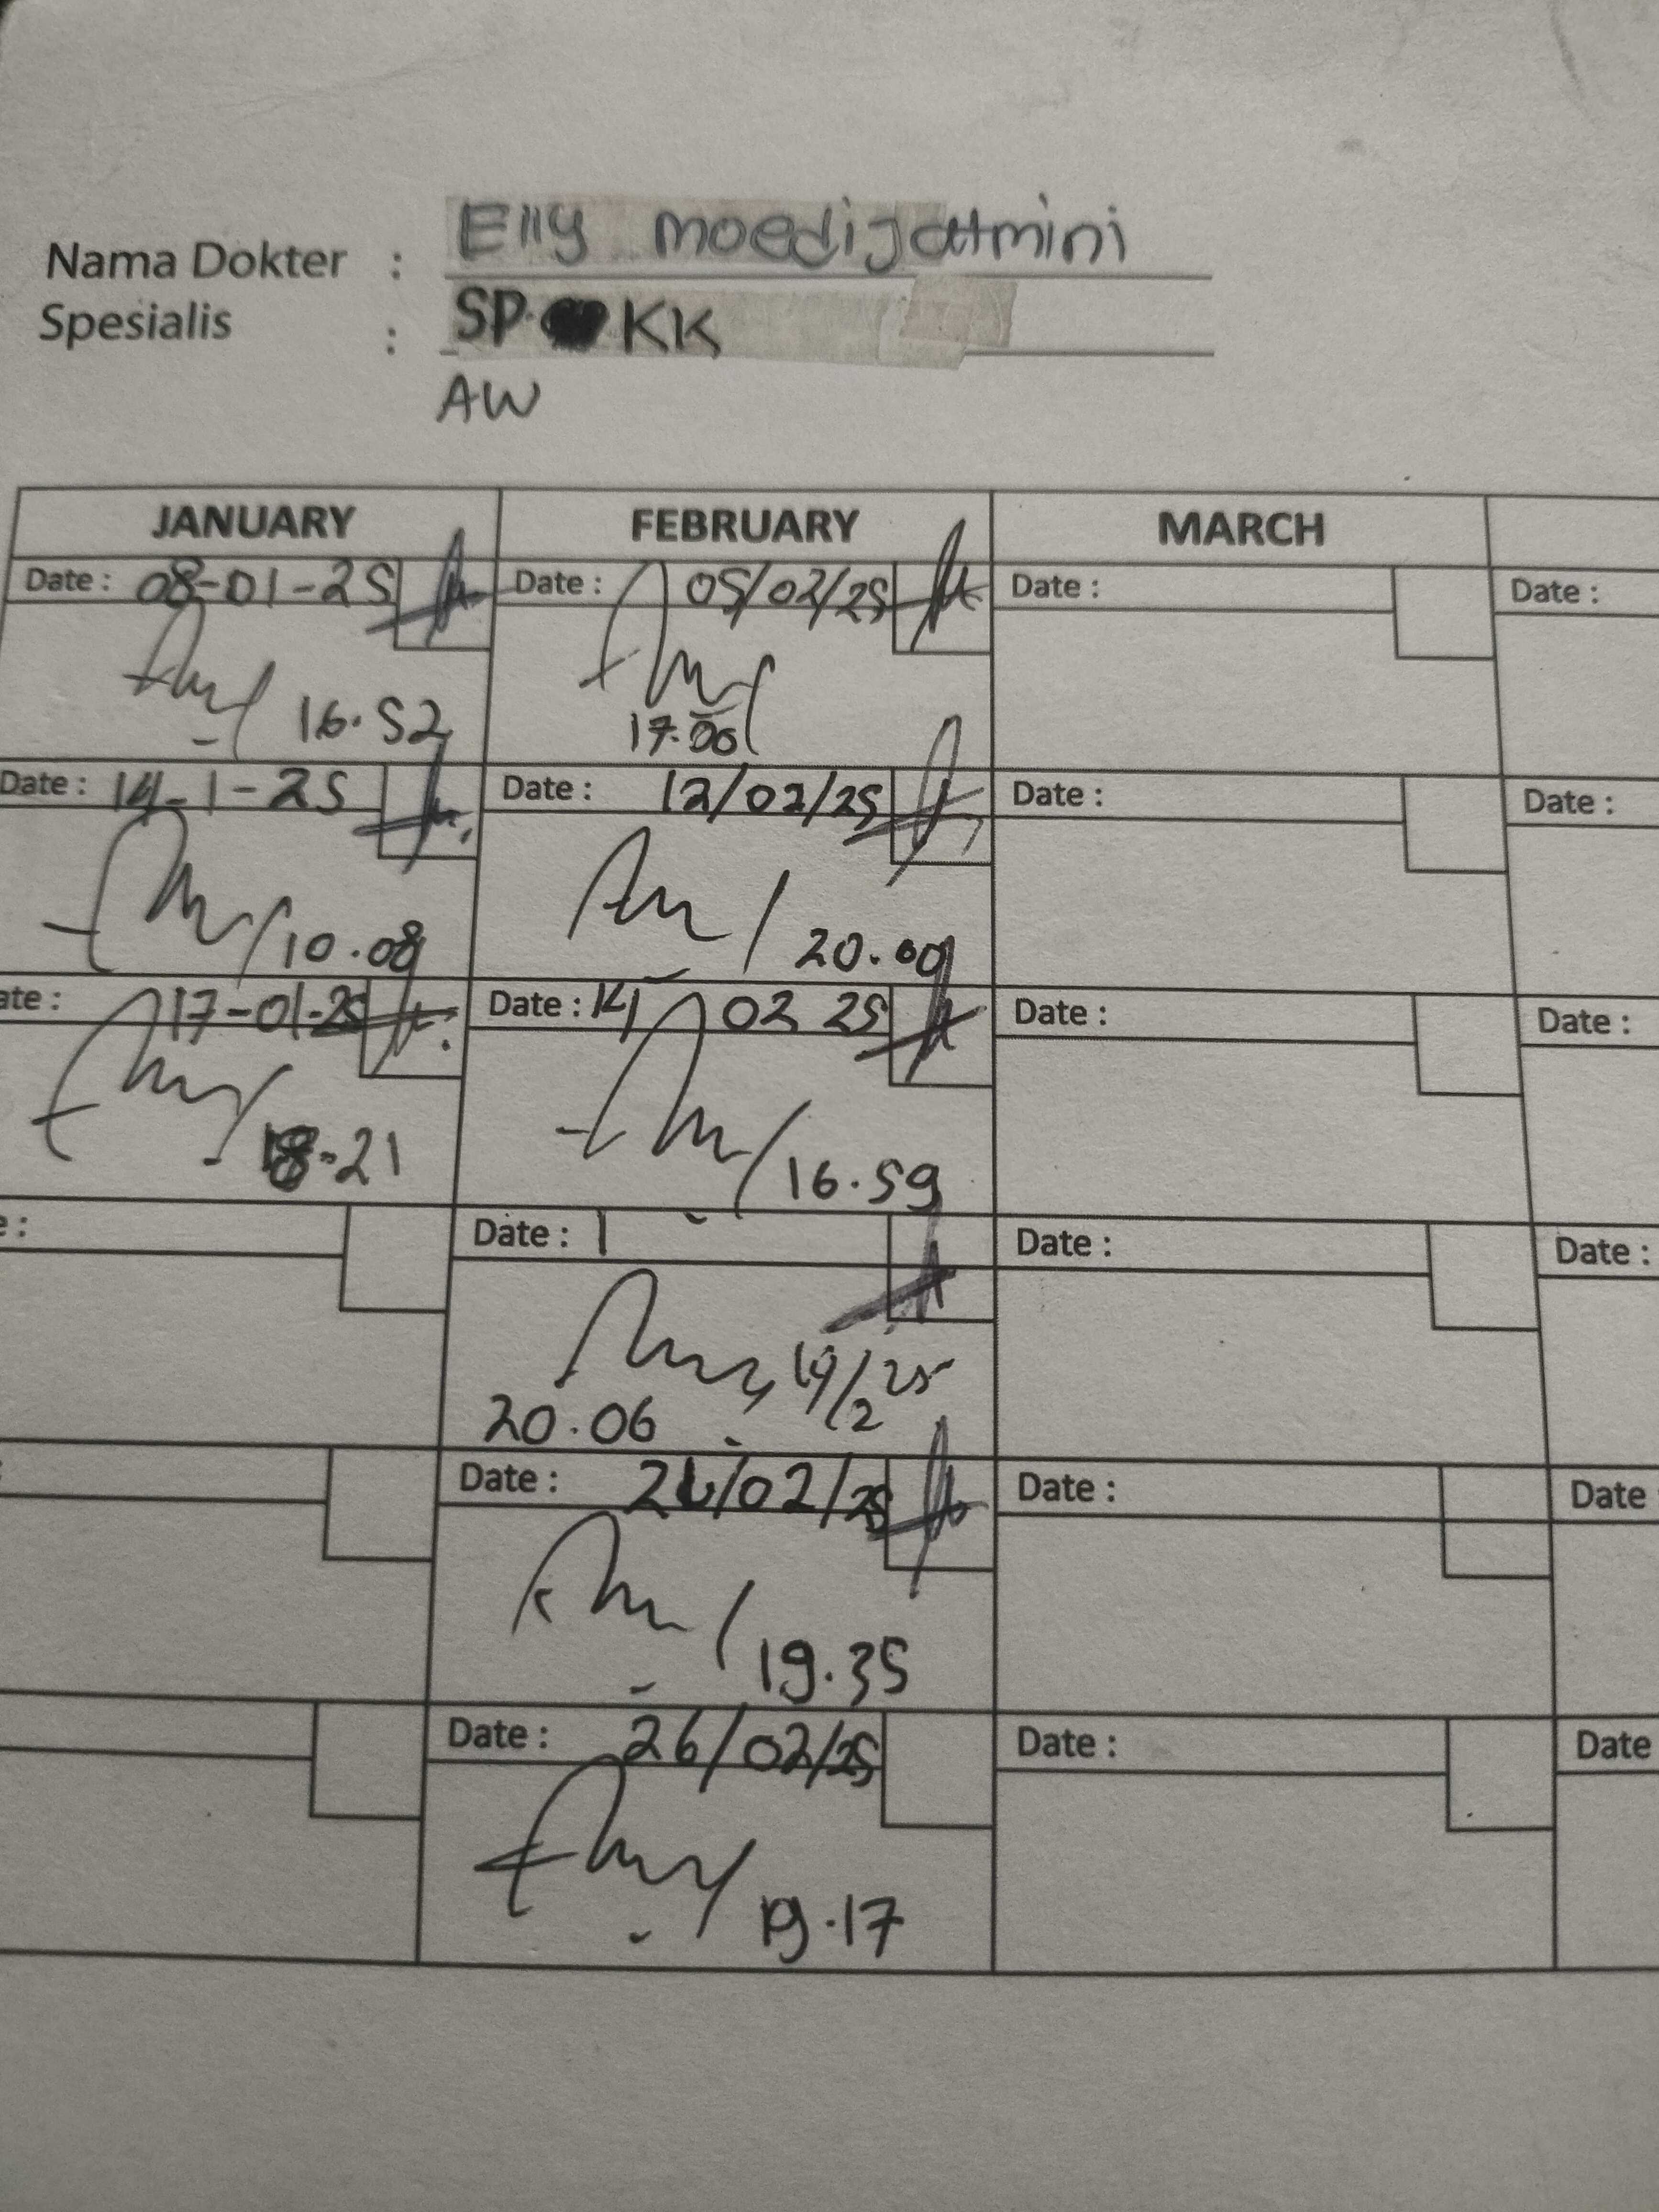 Nama Dokter : Elly moedijatmini
Spesialis : SP. KK
AW
JANUARY FEBRUARY MARCH
Date : 08-01-25 Date : 05/02/25 Date : Date :
16.52 17.00
Date : 14-1-25 Date : 12/02/25 Date : Date :
10.08 20.00
ate : 17-01-25 Date : 14 02 25 Date : Date :
18.21 16.59
e : Date : 1 Date : Date :
19/2 25
20.06
: Date : /02/25 Date : Date
19.35
Date : 26/02/25 Date : Date
19.17